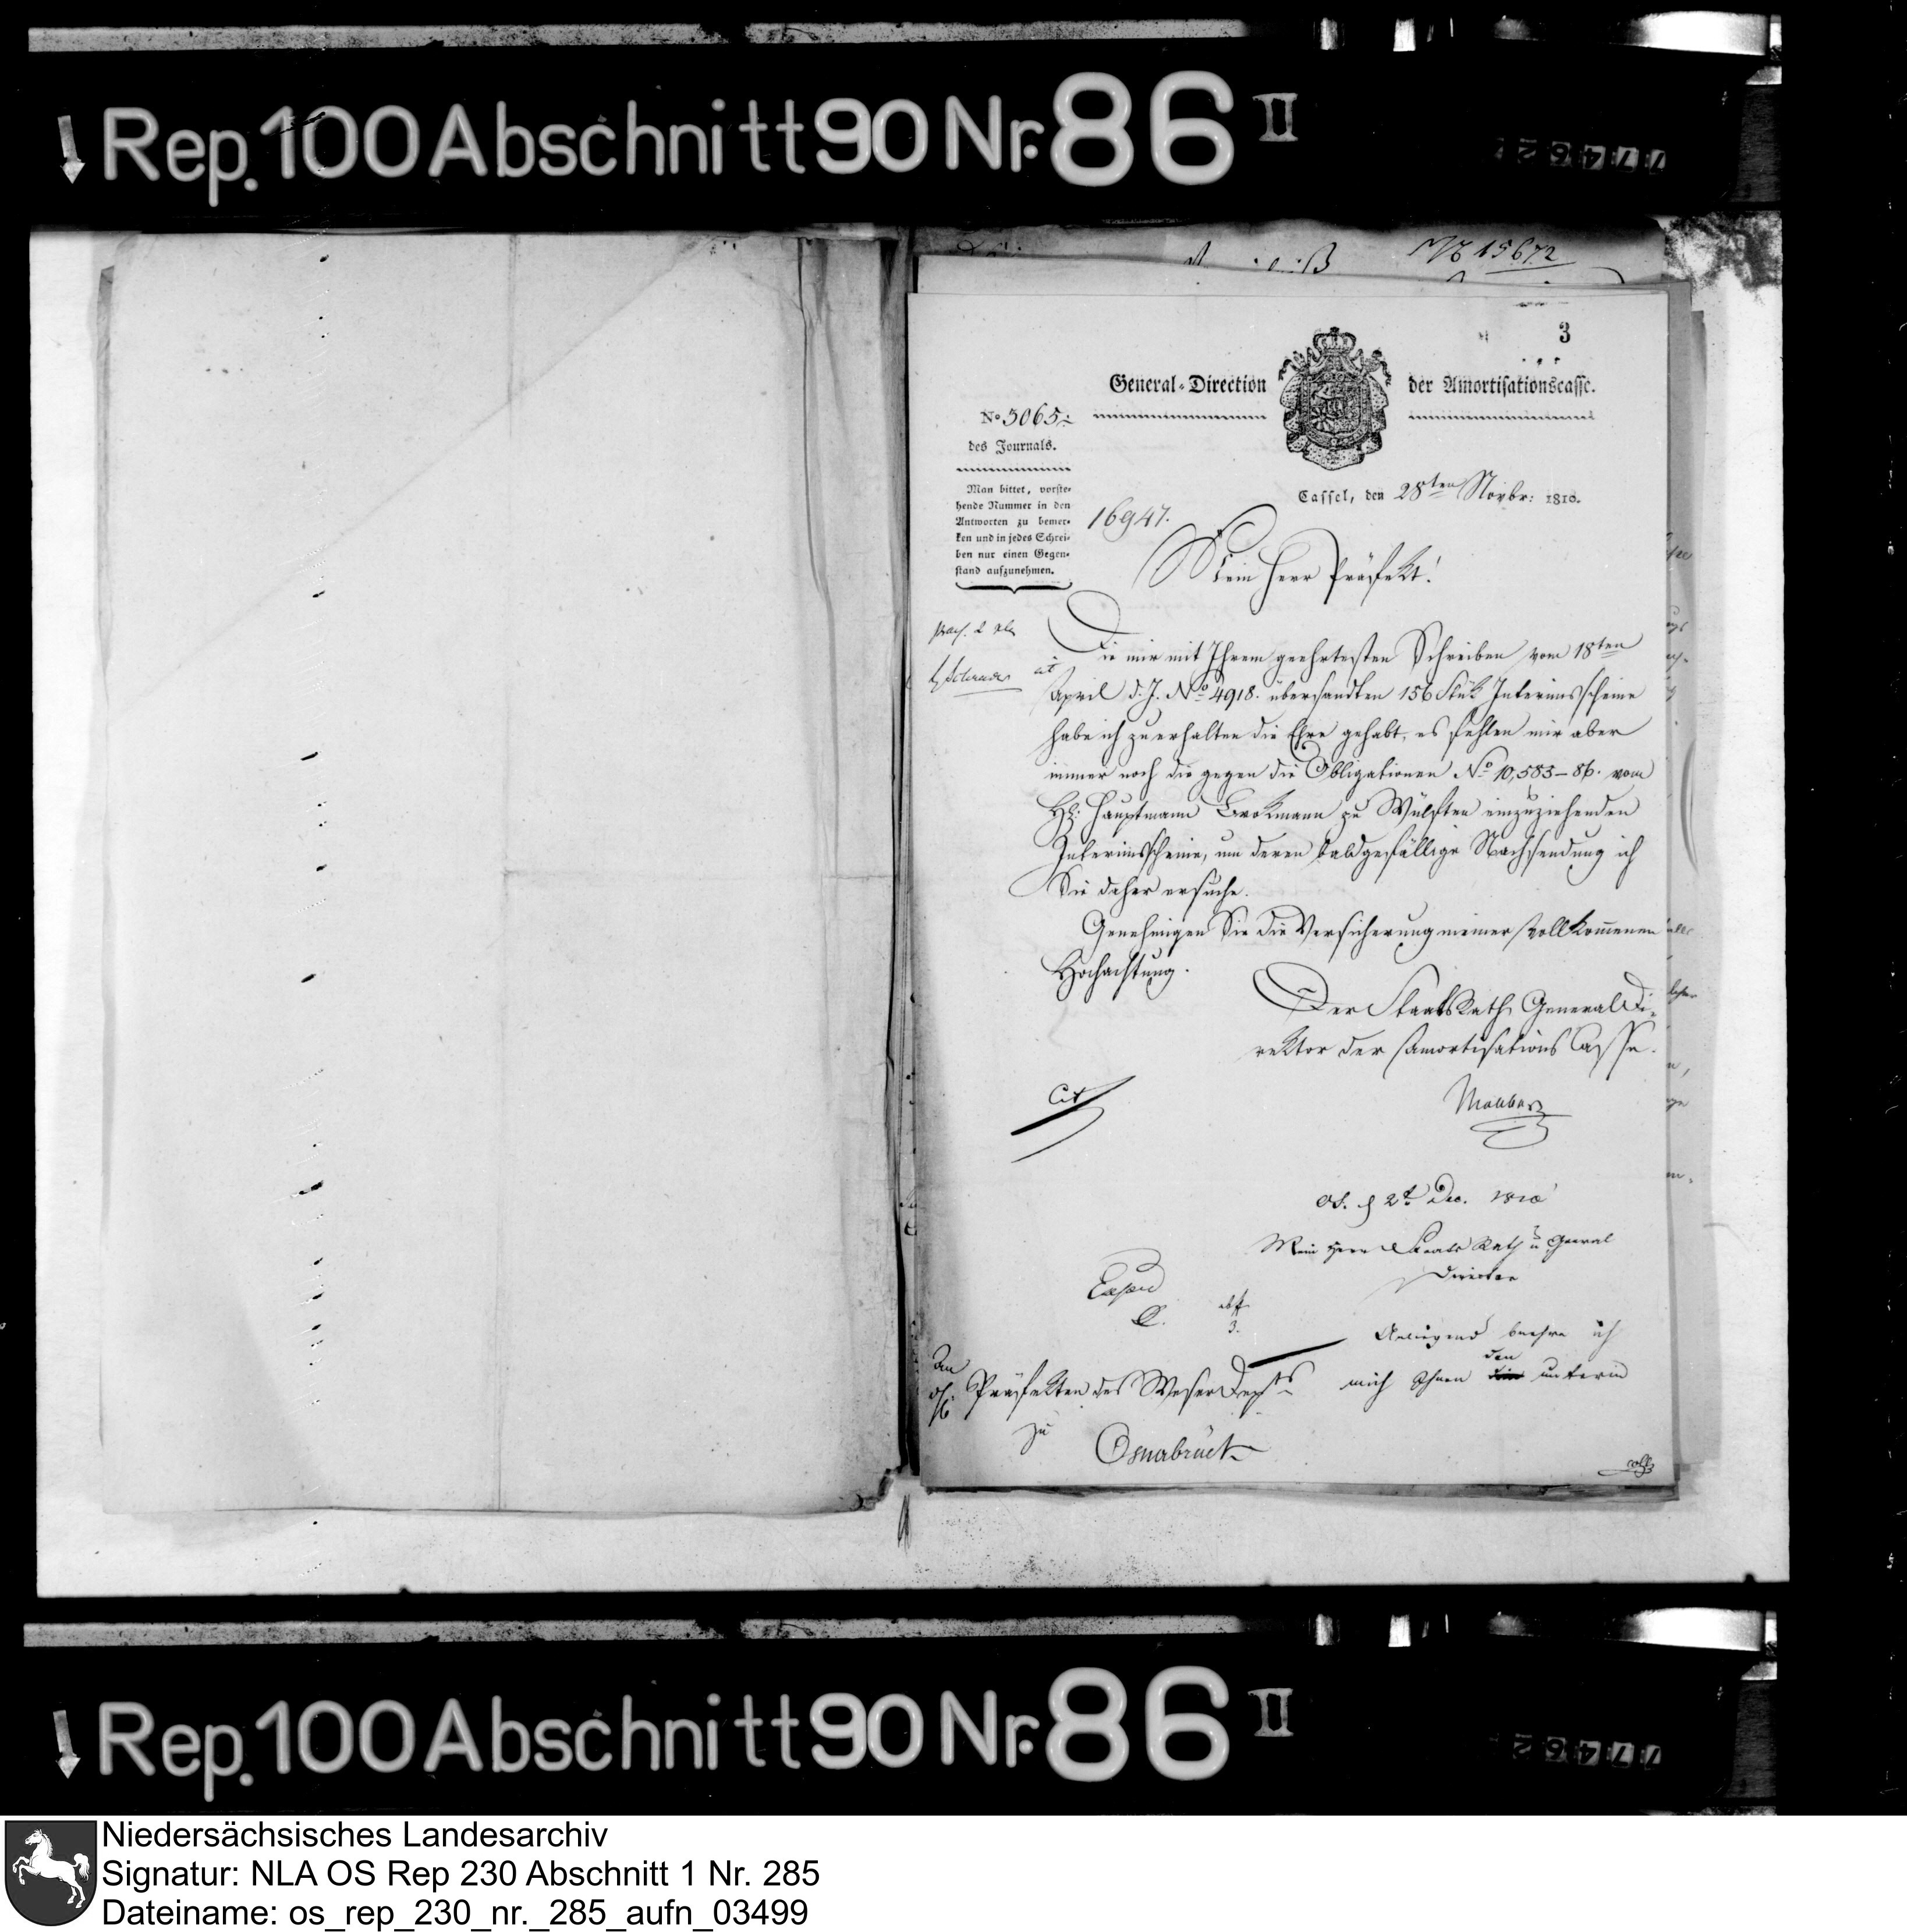 Rep. 100 Abschnitt 90 Nr. 86 II
15672
3
General-Direction der Amortisationscasse.
No 5065.
des Journals.
Man bittet, vorste-
hende Nummer in den
Antworten zu bemer-
ken und in jedes Schrei-
ben nur einen Gegen-
stand aufzunehmen.
Cassel, den 28ten Novbr: 1810.
16947.
Mein Herr Präfekt!
Die mir mit Ihrem geehrtesten Schreiben vom 18ten
April d. J. No 4918. übersandten 156 Stük Interimsscheine
habe ich zu erhalten die Ehre gehabt, es fehlen mir aber
immer noch die gegen die Obligationen No 10,583-86. vom
H: Hauptmann Brokmann zu Wülften einzuziehenden
Interimsscheine, um deren baldgefällige Nachsendung ich
Sie daher ersuche.
Genehmigen Sie die Versicherung meiner vollkommenen
Hochachtung.
Der StaatsRath, General Di-
rektor der Amortisations Casse.
Malchus
Cit
Os. d 2t Dec. 1810
Mein Herr Staats Rath u General
Director
Anliegend beehre ich
mich Ihnen den unterm
An
Präfekten des Weser Depts
zu
Osnabrück
Rep. 100 Abschnitt 90 Nr. 86 II
Niedersächsisches Landesarchiv
Signatur: NLA OS Rep 230 Abschnitt 1 Nr. 285
Dateiname: os_rep_230_nr._285_aufn_03499